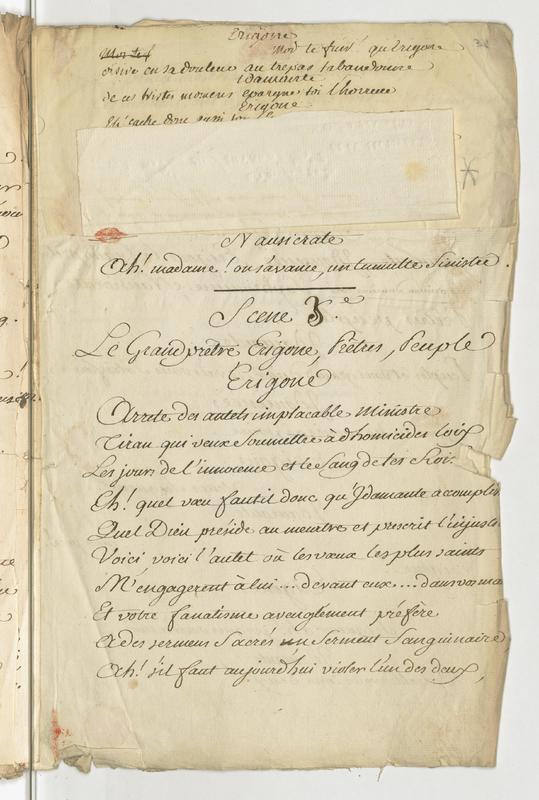 Erigone
Moi te fuir! qu'Erigone
en sa douleur au trepas t'abandonne
Idamante
de ces tristes momens epargne toi l'horreur
Erigone
Nausicrate
Ah! madame! on s'avance, un tumulte Sinistre.
Scene 3e.
Le Grand prêtre Erigone, Prêtres, Peuple
Erigone
Arrete des autels implacable Ministre
Tiran qui veux Soumettre à d'homicides loix
Les jours de l'innocence et le Sang de tes Rois.
Eh! quel vœu faut il donc qu'Idamante accomplis
Quel Dieu préside au meurtre et prescrit l'injust
Voici voici l'autel où les vœux les plus saints
M'engagerent à lui... devant eux... dans vos ma
Et votre fanatisme aveuglement préfère
A des sermens Sacrés un Serment Sanguinaire,
Ah! s'il faut aujourd'hui violer l'un des deux,